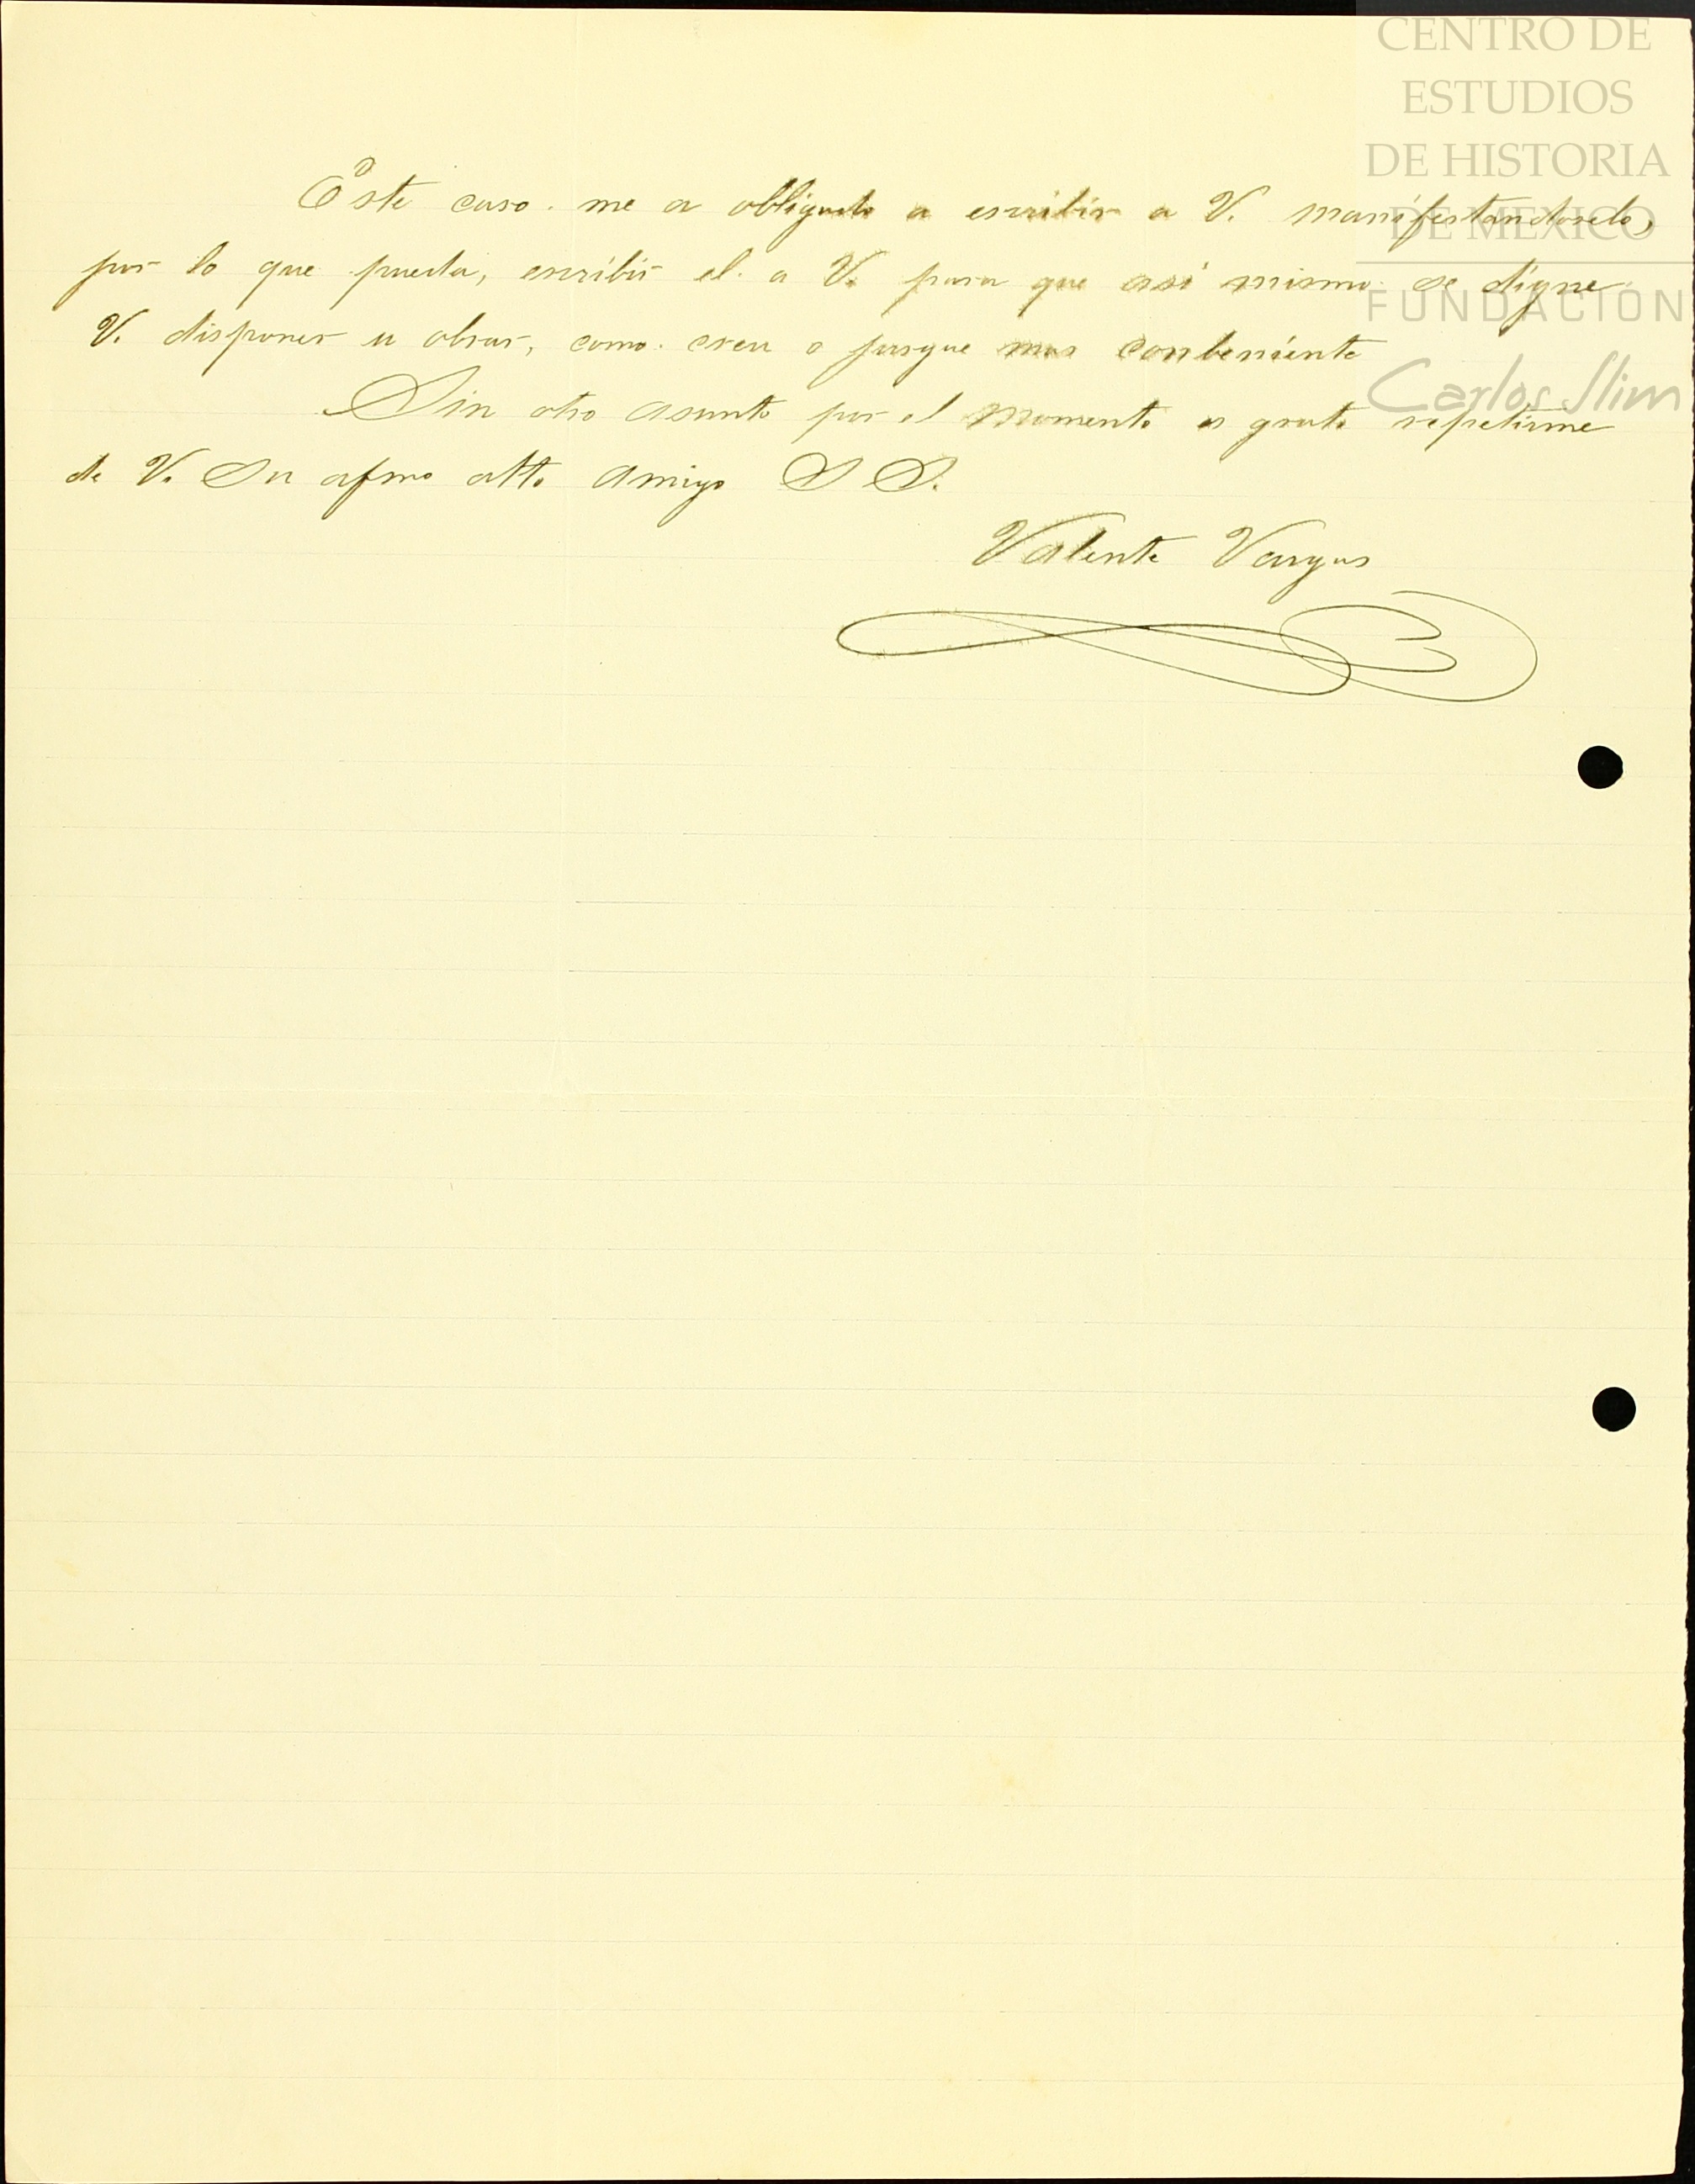 CENTRO DE
ESTUDIOS
DE HISTORIA
DE MÉXICO
FUNDACIÓN
Carlos Slim
Este caso. me a obligado a escribir a V. manifestandoselo,
por lo que pueda, escribir el. a V. para que asi mismo se digne
V. disponer u obrar, como. crea o jusgue mas conbeniente
Sin otro asunto por el momento es grato repetirme
de V. Su afmo atto amigo S S.
Valente Vargas